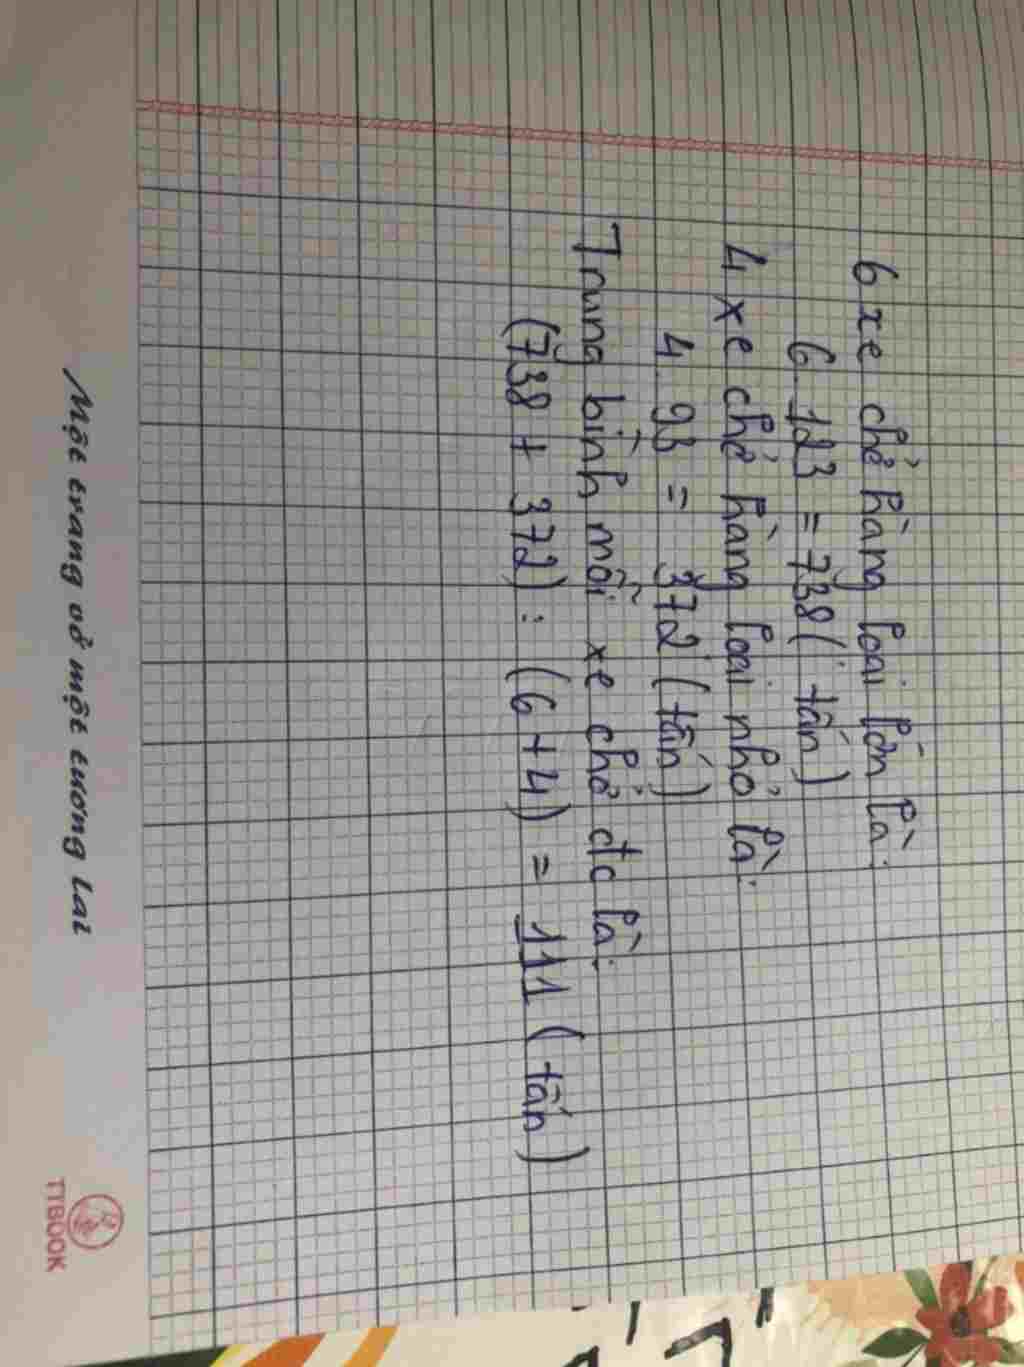 6 xe chở hàng loại lớn là:
6.123 = 738 (tấn)
4 xe chở hàng loại nhỏ là:
4.93 = 372 (tấn)
Trung bình mỗi xe chở đc là:
(738 + 372) : (6+4) = 111 (tấn)
Một trang vở một tương lai
TTBOOK